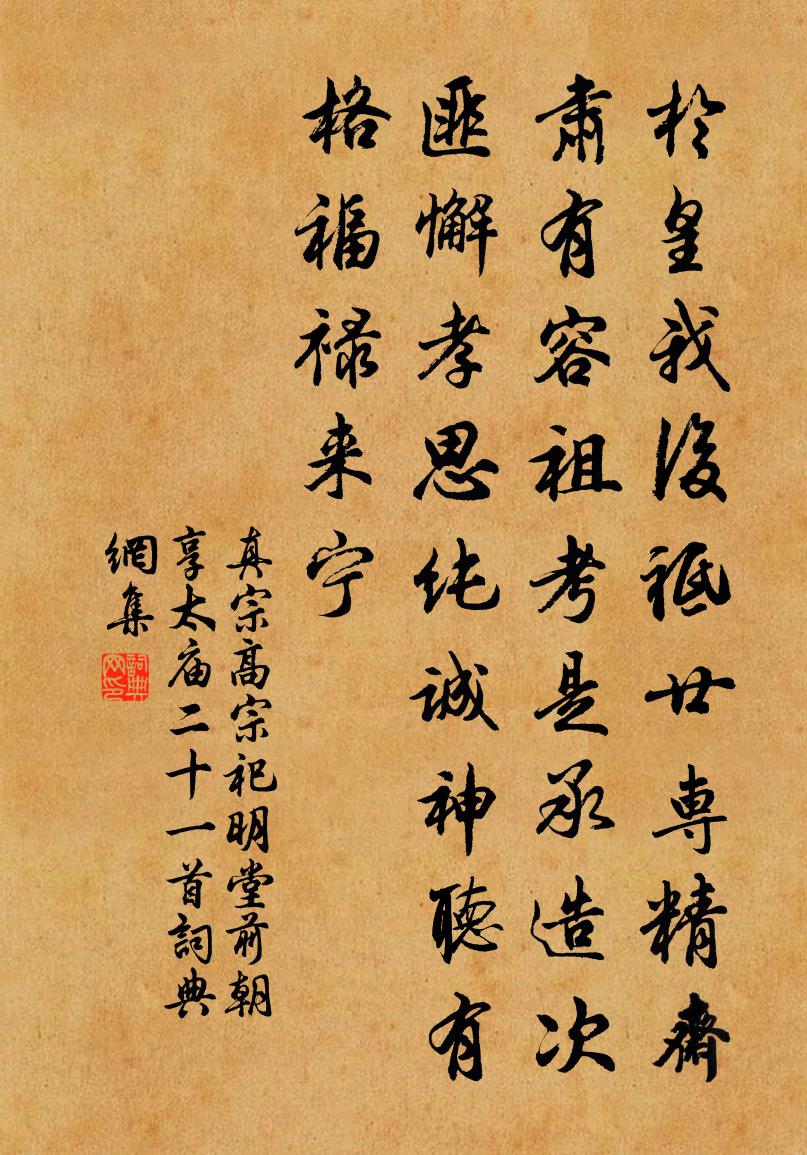 於皇我後祗廿専精齋
肅有容祖考是承造次
匪懈孝思纯誠神聴有
格福禄来宁
真宗高宗祀明堂前朝
享太庙二十一首詞典
網集
詞典网印